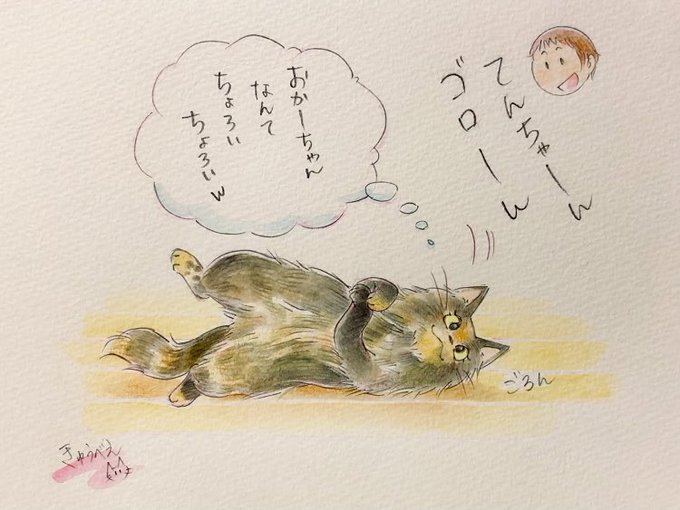 てんちゃーん
ゴローん
おかーちゃん
なんて
ちょろい
ちょろいw
ごろん
きゅうべえ